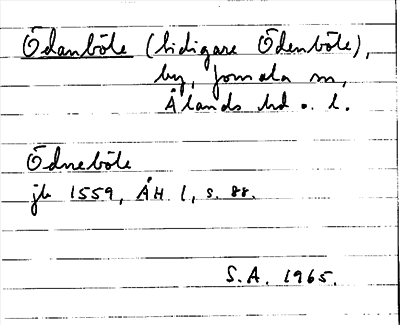 Ödanböle (tidigare Ödenböle),
by, Jomala sn,
Ålands hd o. l.
Ödneböle
jb 1559, ÅH 1, s. 88.
S.A. 1965.